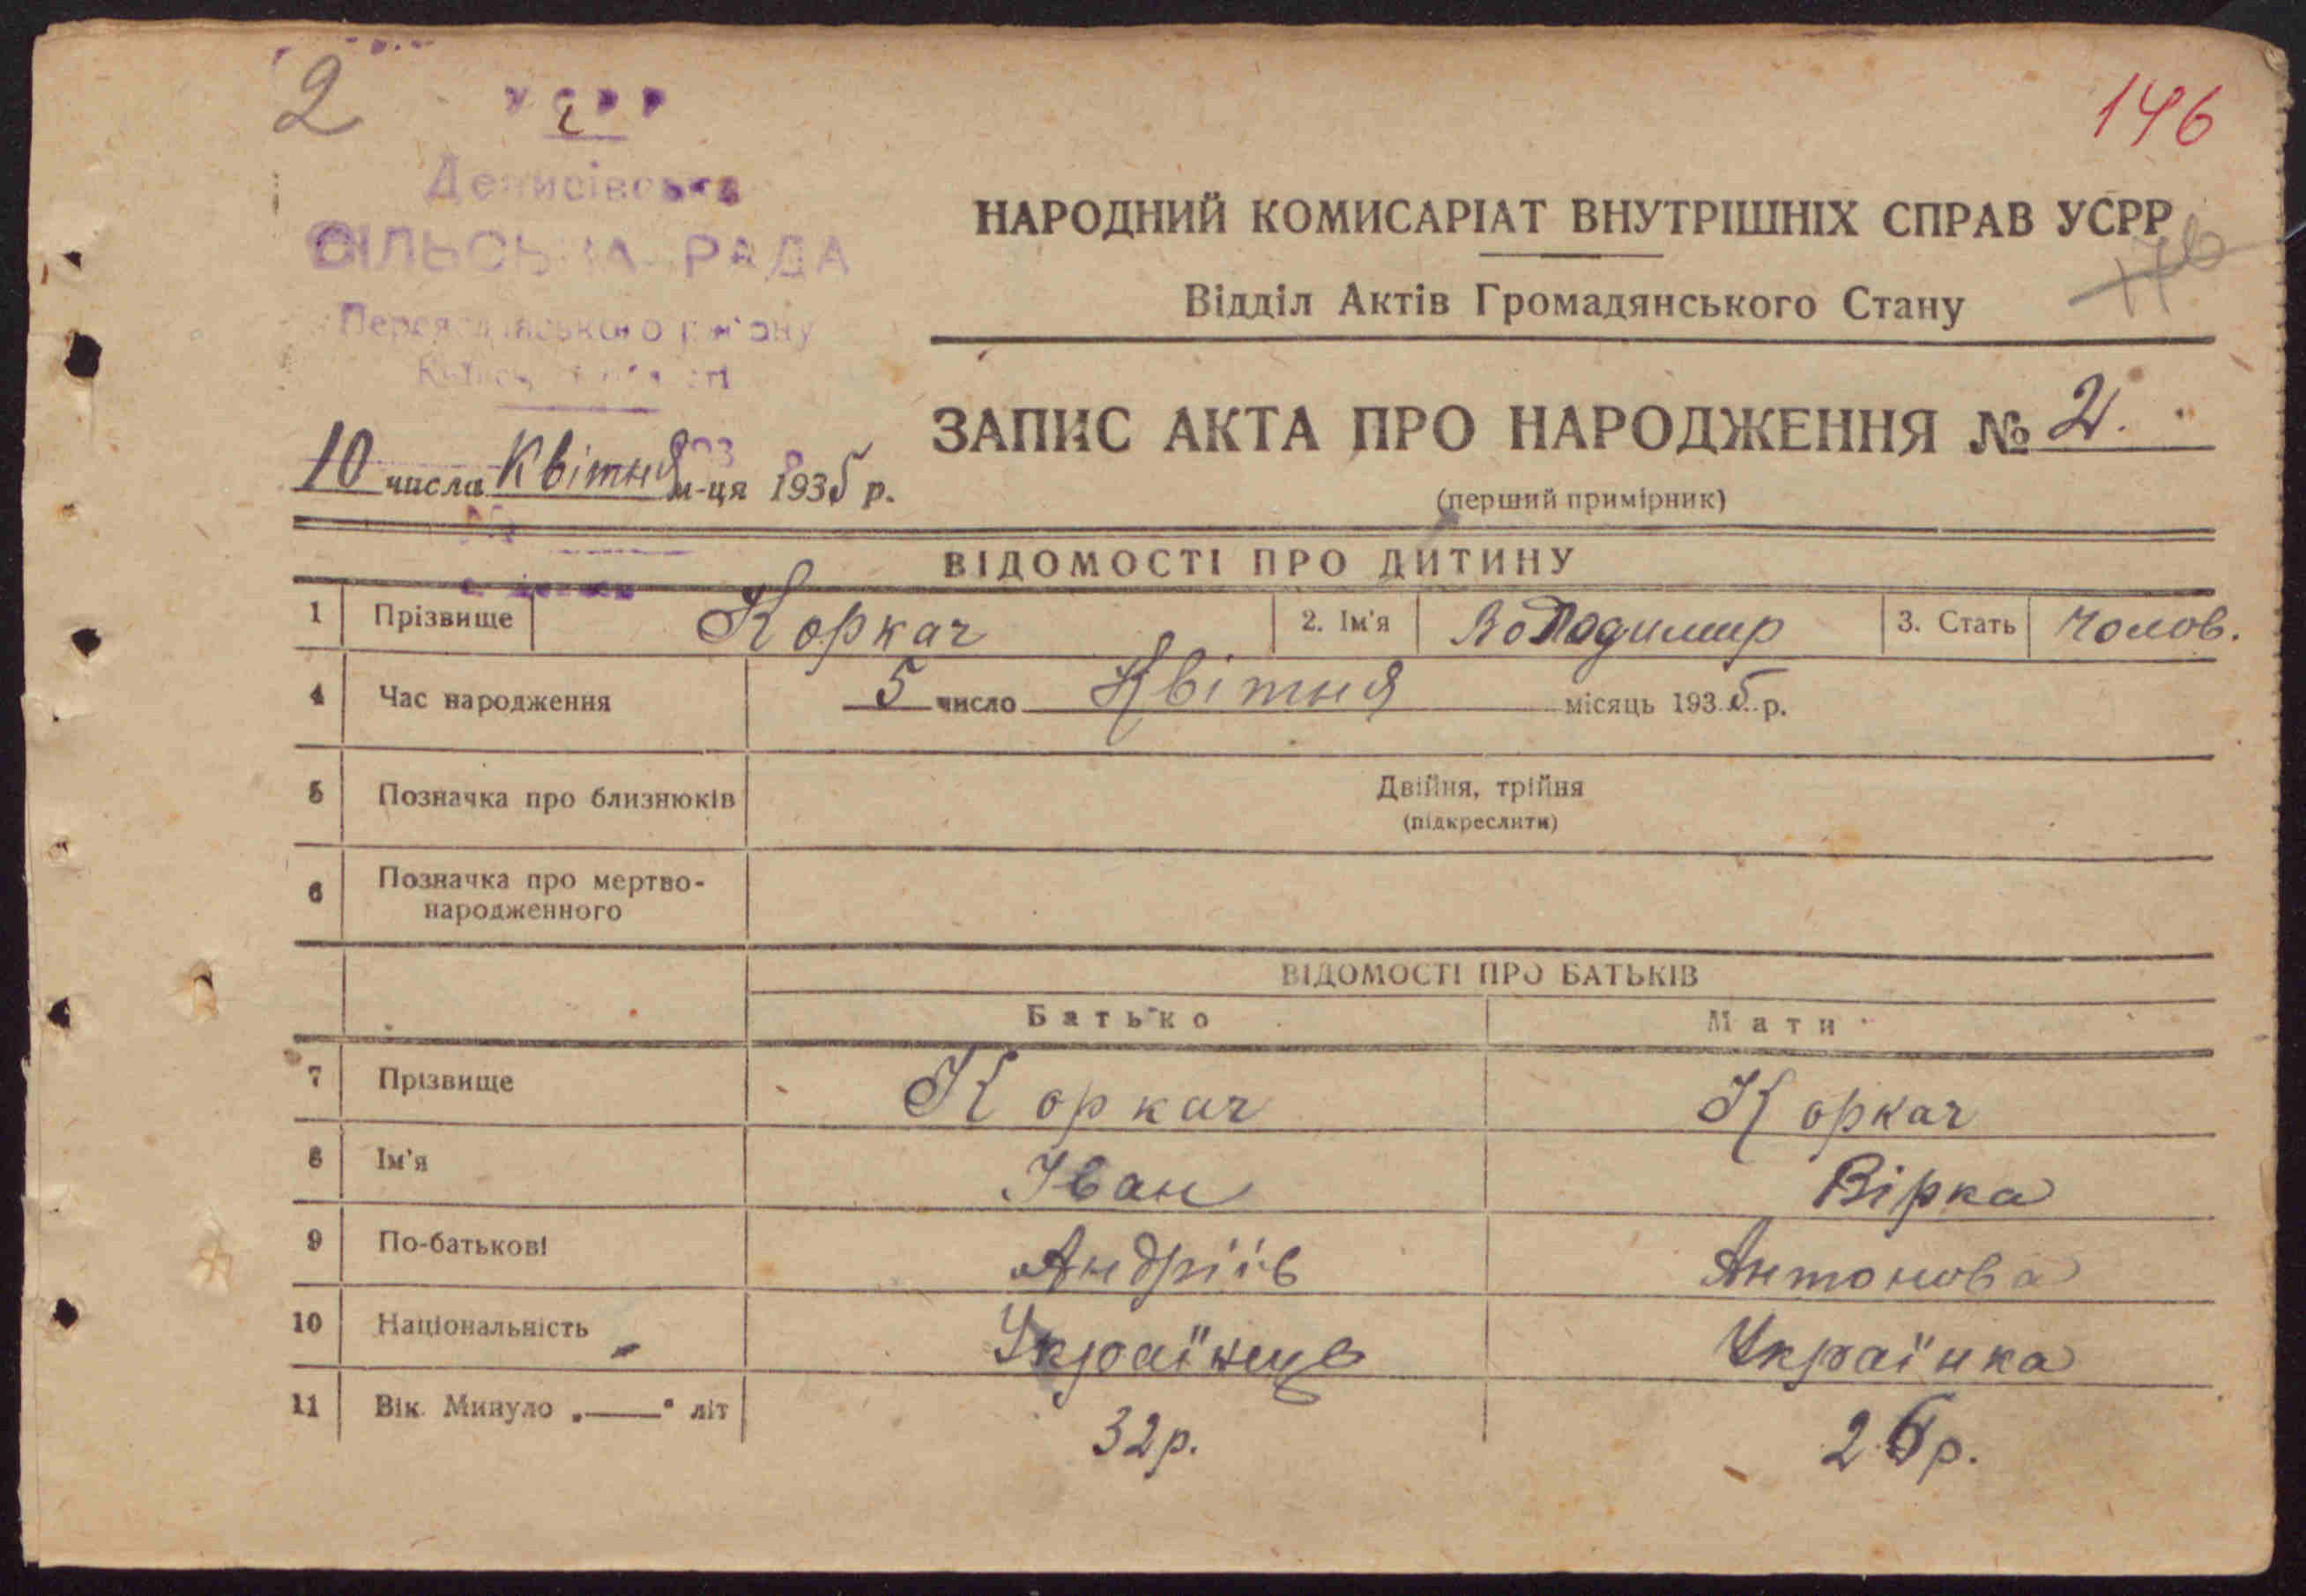 2
146
2
Денисівська
СІЛЬСЬКА РАДА
Переяславського району
НАРОДНИЙ КОМИСАРІАТ ВНУТРІШНІХ СПРАВ УСРР
176
Відділ Актів Громадянського Стану
ЗАПИС АКТА ПРО НАРОДЖЕННЯ № 2.
10 числа Квітня м-ця 1935 р.
(перший примірник)
ВІДОМОСТІ ПРО ДИТИНУ
1 Прізвище Коркач 2. Ім'я Володимир 3. Стать Чолов.
4 Час народження 5 число Квітня місяць 1935 р.
5 Позначка про близнюків Двійня, трійня
(підкреслити)
6 Позначка про мертво-
народженного
ВІДОМОСТІ ПРО БАТЬКІВ
Батько Мати
7 Прізвище Коркач Коркач
8 Ім'я Іван Вірка
9 По-батькові Андріїв Антонова
10 Національність Українець Українка
11 Вік. Минуло „——“ літ 32р. 26р.